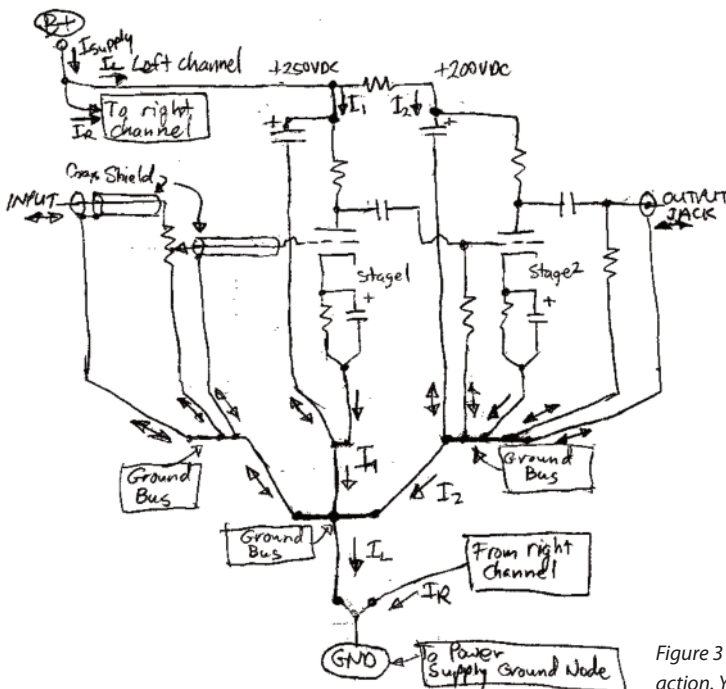 B+
Isupply
IL Left channel
+250VDC
+200VDC
I1
I2
To right
channel
IR
+
+
Coax Shield
INPUT
OUTPUT
JACK
Stage1
Stage2
+
+
Ground
Bus
I1
I2
Ground
Bus
Ground
Bus
IL
IR
From right
Channel
GND
To Power
Supply Ground Node
Figure 3
action. Y